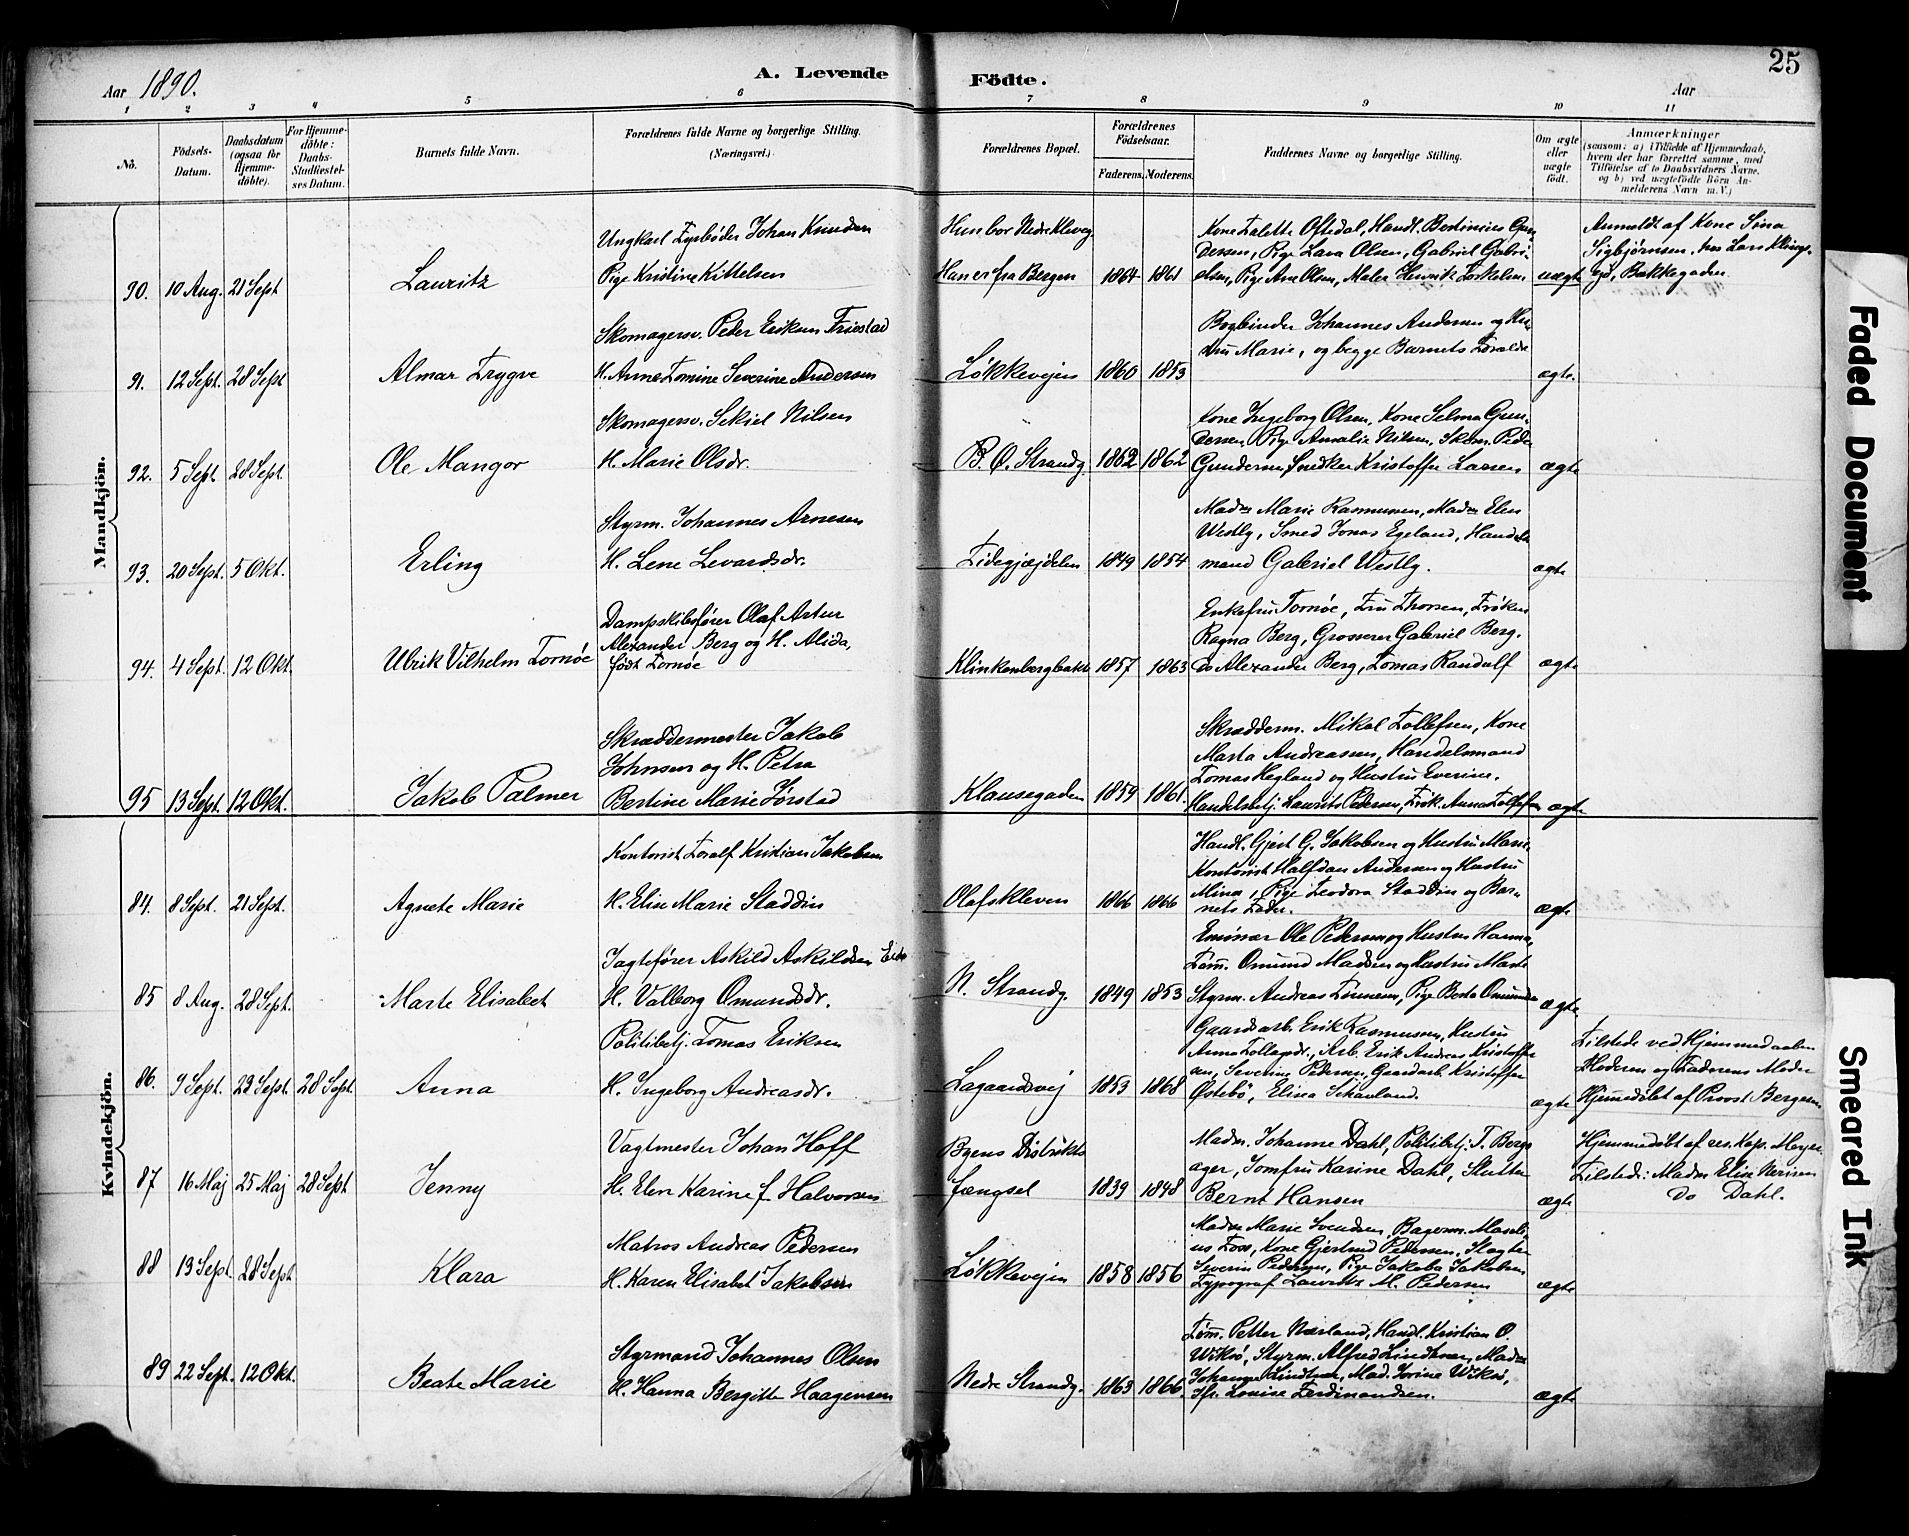 25
Aar 1890.
A. Levende Födte.
Aar
1 2 3 4 5 6 7 8 9 10 11
No.
Födsels-Datum.
Daabsdatum (ogsaa for Hjemme-döbte).
For Hjemme-döbte: Daabs-Stadfæstel-ses Datum.
Barnets fulde Navn.
Forældrenes fulde Navne og borgerlige Stilling.
(Næringsvei.)
Forældrenes Bopæl.
Forældrenes Födselsaar.
Faderens. Moderens.
Faddernes Navne og borgerlige Stilling.
Om ægte eller uægte födt.
Anmærkninger
(saasom: a) i Tilfælde af Hjemmedaab,
hvem der har forrettet samme, med
Tilföielse af to Daabsvidners Navne,
og b) ved uægtefödte Börn An-
melderens Navn m. V.)
Mandkjön.
90. 10 Aug. 21 Sept
Lauritz
Ungkarl Fyrbøder Johan Knudsen
Pige Kristine Kittelsen
Hun bor Nedre Kleveg.
Han er fra Bergen
1864 1861
Kone Lalette Oftedal, Handl. Bertinius Gun
dersen, Pige Lava Olsen, Gabriel Gabri-
elsen, Pige Ane Olsen, Maler Henrik Torkelsen
uægte
Anmeldt af Kone Sina
Sigbjørnsen, hos Lars
Bakkegaden
91. 12 Sept. 28 Sept
Almar Trygve
Skomagersv. Peder Eriksen Friestad
H. Anne Tomine Severine Andersen
Løkkevejen
1860 1853
Bogbinder Johannes Andersen og Hu-
stru Marie, og begge Barnets Forældre
ægte.
92. 5 Sept 28 Sept.
Ole Mangor
Skomagersv. Sekiel Nilsen
H. Marie Olsdr.
B. Ø. Strandg.
1862 1862
Kone Ingeborg Olsen, Kone Selma Gun
dersen, Pige Amalie Nilsen, Skom. Peder
Gundersen Snedker Kristoffer Larsen
ægte
93. 20 Sept. 5 Okt.
Erling
Styrm. Johannes Arnesen
H. Lene Levardsdr.
Tidegjæjdelen
1849 1854
Madm Marie Rasmussen, Madm Elen
Westly, Smed Jonas Egeland, Handels
mand Gabriel Westly.
ægte
94. 4 Sept. 12 Okt.
Ulrik Vilhelm Tornøe
Dampskibsfører Olaf Artur
Alexander Berg og H. Alida,
født Tornøe
Klinkenbergbakk
1857 1863
Enkefru Tornøe, Fru Thorsen, Frøken
Ragna Berg, Grosserer Gabriel Berg.
Do Alexander Berg, Tomas Randulf
ægte
95 13 Sept. 12 Okt.
Jakob Palmer
Skræddermester Jakob
Johnsen og H. Petra
Bertine Marie Jørstad
Klausegaden
1859 1861.
Skrædderm. Mikal Tollefsen, Kone
Marta Andreassen, Handelsmand
Tomas Hegland og Hustru Everine.
Handelsbetj. Laurits Pedersen, Frøk. Anna Tollefsen
ægte
Kvindekjön.
84. 8 Sept. 21 Sept.
Agnete Marie
Kontorist Toralf Kristian Jakobsen
H. Elise Marie Staddin
Olafskleven
1866 1866
Handl. Gjert G. Jakobsen og Hustru Marie,
Kontorist Halfdan Andersen og Hustru
Mina, Pige Teodora Staddin og Bar-
nets Fader.
ægte
85 8 Aug. 28 Sept.
Marte Elisabet
Jagtefører Askild Askildsen Eide
H. Valborg Omundsdr.
N. Strandg.
1849 1853
Ole Pedersen og Hustru Hanna,
Tømm. Omund Madsen og Hustru Marte
Styrm. Andreas Tønnesen, Pige Berta Omundsen
ægte
86. 9 Sept. 23 Sept. 28 Sept.
Anna
Politibetj. Tomas Eriksen
H. Ingeborg Andreasdr.
Lagaardsvej
1853 1868
Gaardsarb. Erik Rasmussen, Hustru
Anna Tollagsdr., Arb. Erik Andreas Kristoffer
sen, Severine Pedersen, Gaardarb. Kristoffer
Østebø, Elina Schauland.
ægte
Tilstede ved Hjemmedaaben
Moderen og Faderens Moder
Hjemmedøbt af Provst Bergesen
87 16 Maj 25 Maj 28 Sept
Jenny
Vagtmester Johan Hoff
H. Elen Karine f. Halvorsen
Byens Distrikts
fængsel
1839 1848
Madm. Johanne Dahl, Politibetj. T. Berg
ager, Jomfru Karine Dahl, Slutter
Bernt Hansen
ægte
Hjemmedøbt af res. Kap. Meyer
Tilstede: Madm Elise Iversen
Do Dahl.
88 13 Sept. 28 Sept
Klara
Matros Andreas Pedersen
H. Karen Elisabet Jakobsen
Løkkevejen
1858 1856
Madm Marie Svendsen, Bagerm. Mauseli
us Foss, Kone Gjertrud Pedersen, Slagter
Severin Pedersen, Pige Jakoba Jakobsen
Typograf Lauritz M. Pedersen
ægte
89 22 Sept. 12 Okt.
Beate Marie
Styrmand Johannes Olsen
H. Hanna Bergitte Haagensen
Nedre Strandg.
1863 1866.
Tømm. Petter Nærland, Handl. Kristian O.
Wiksø, Styrm. Alfred Lindtner, Madm
Johanne Lindtner, Mad. Sorine Wiksø,
Jfr. Lovise Ferdinandsen.
ægte
Faded Document
Smeared Ink